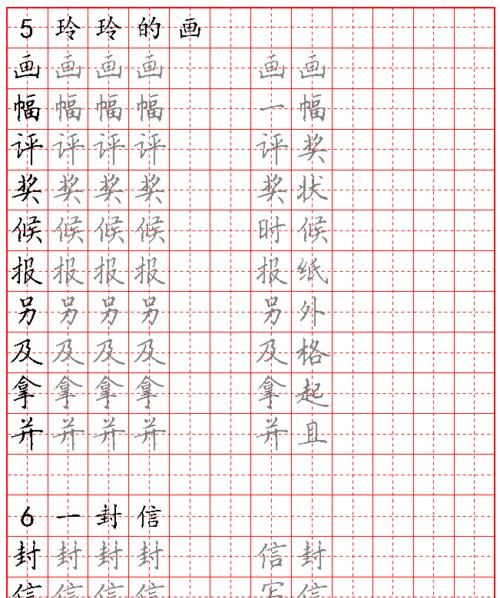 5 玲玲的画
画画画画 画画
幅幅幅幅 一幅
评评评评 评奖
奖奖奖奖 奖状
候候候候 时候
报报报报 报纸
另另另另 另外
及及及及 及格
拿拿拿拿 拿起
并并并并 并且
6 一封信
封封封封 信封
信信信信 写信